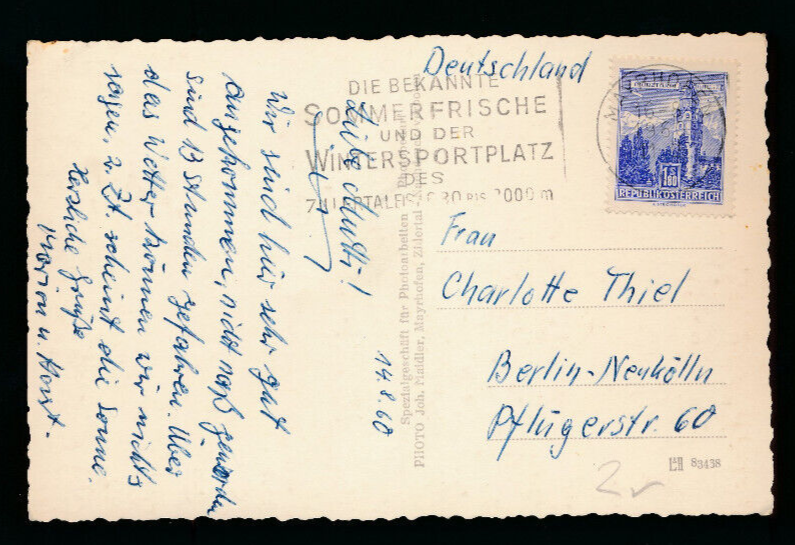 Deutschland
DIE BEKANNTE
SOMMERFRISCHE
UND DER
WINTERSPORTPLATZ
DES
ZILLERTALES
BIS 2000 m
1.80
S
REPUBLIK ÖSTERREICH
14.8.60
Liebe Mutti!
Wir sind hier sehr gut
angekommen, nicht naß geworden
sind 13 Stunden gefahren. Über
das Wetter können wir nichts
sagen, z. Zt. scheint die Sonne.
Herzliche Grüße
Marion u. Horst.
Spezialgeschäft für Photoarbeiten
PHOTO Joh. Mayrhofen, Zillertal
Frau
Charlotte Thiel
Berlin-Neukölln
Pflügerstr. 60
83438
2